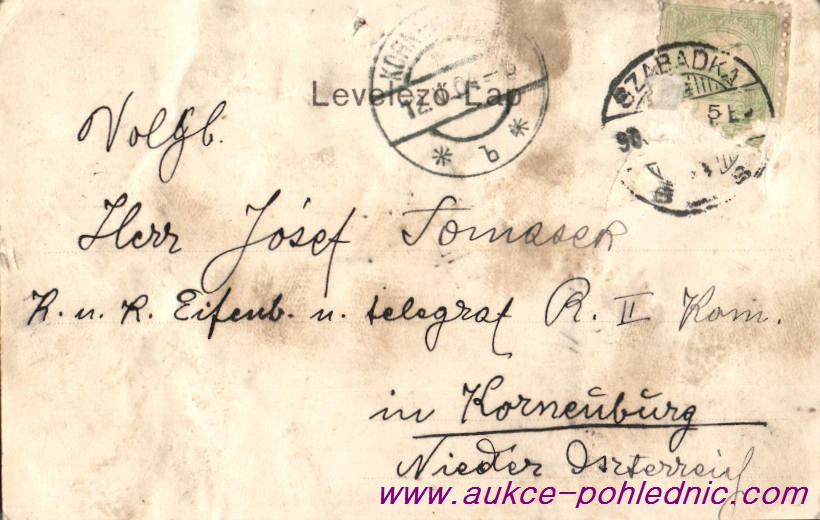 Levelező-Lap
SZABADKA
Volgb.
Herr Jósef Tomasek
K. u. K. Eisenb. u. telegraf R. II Kom.
in Korneuburg
Nieder Oszterreich
www.aukce-pohlednic.com